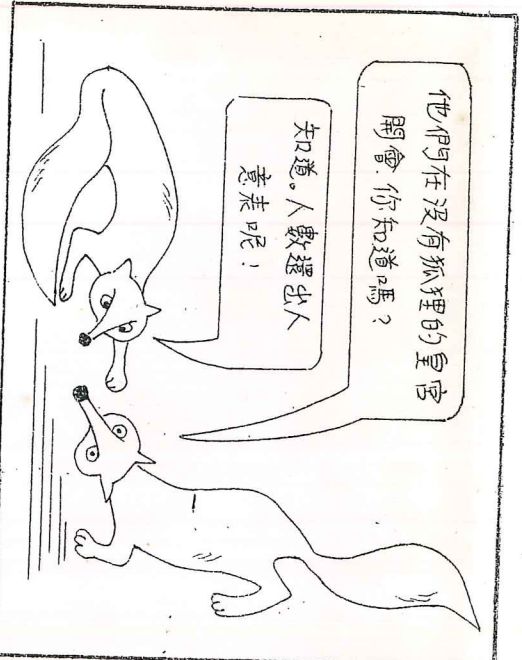 他們在没有狐狸的皇宮
開會.你知道嗎？
知道。人數還出人
意表呢！